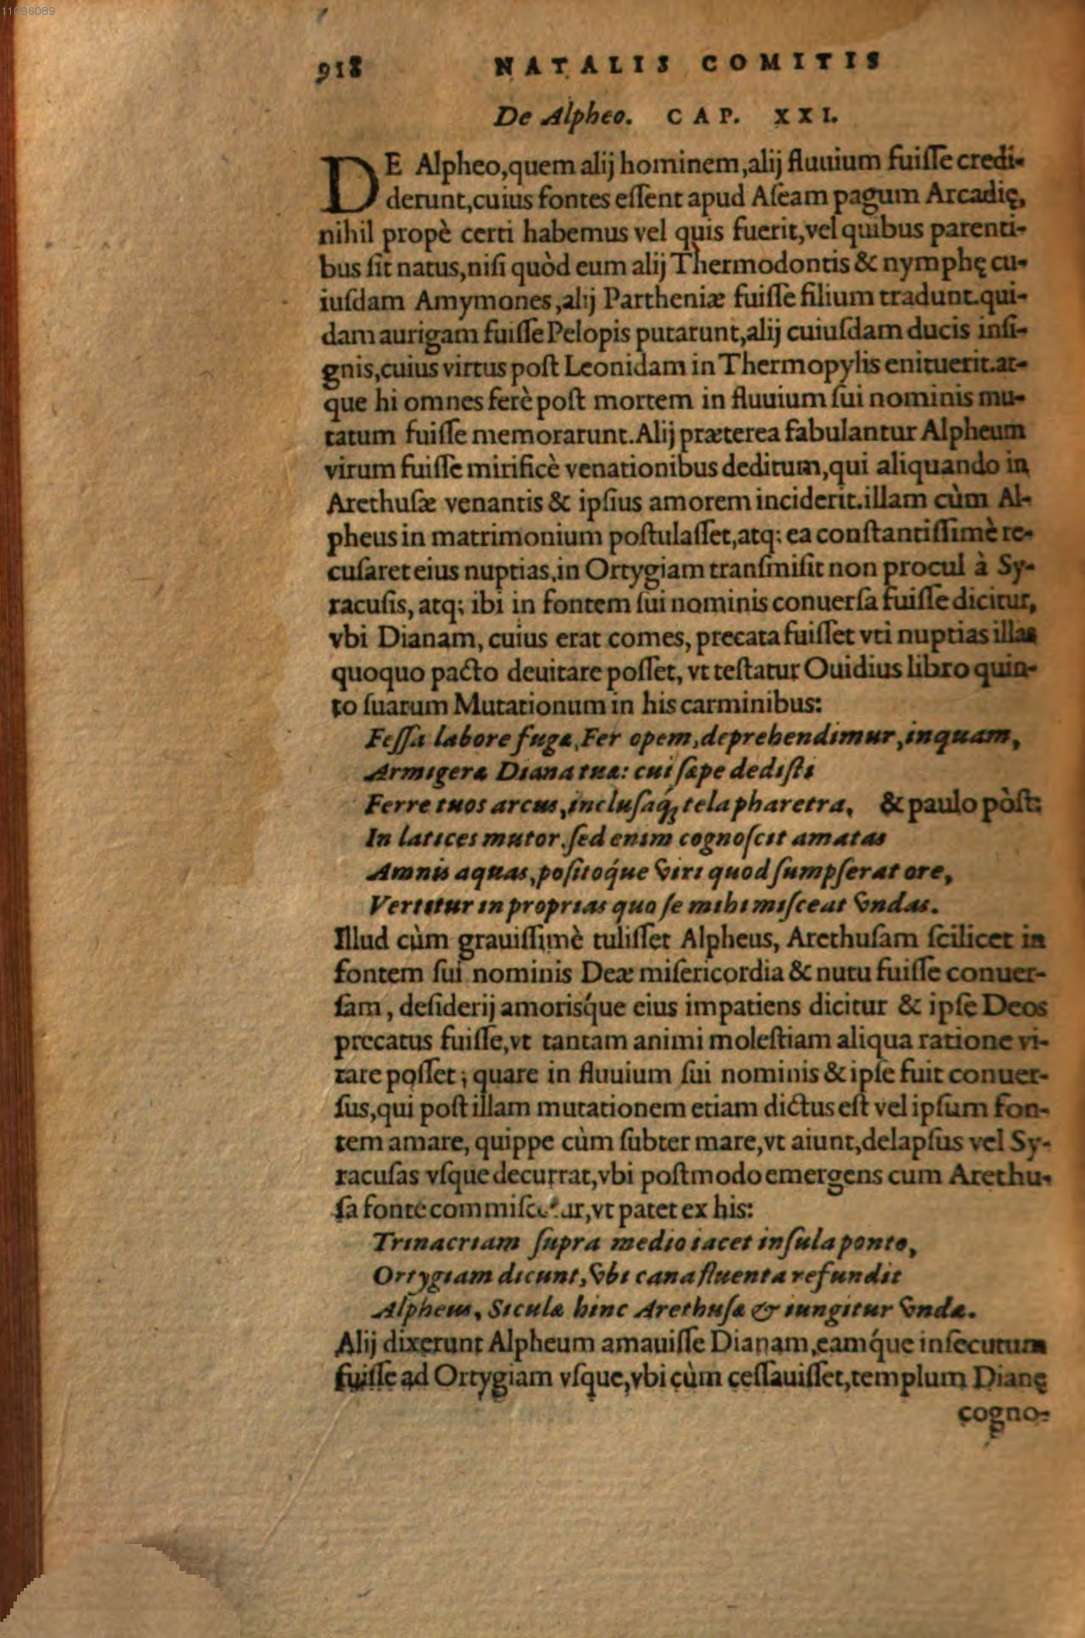 11096089
918 NATALIS COMITIS
De Alpheo. CAP. XXI.
DE Alpheo,quem alij hominem,alij fluuium fuiſſe credi-
derunt,cuius fontes eſſent apud Aſeam pagum Arcadię,
nihil propè certi habemus vel quis fuerit,vel quibus parenti-
bus ſit natus,niſi quòd eum alij Thermodontis & nymphę cu-
iuſdam Amymones,alij Partheniæ fuiſſe filium tradunt.qui-
dam aurigam fuiſſe Pelopis putarunt,alij cuiuſdam ducis inſi-
gnis,cuius virtus poſt Leonidam in Thermopylis enituerit.at-
que hi omnes ferè poſt mortem in fluuium ſui nominis mu-
tatum fuiſſe memorarunt.Alij præterea fabulantur Alpheum
virum fuiſſe mirificè venationibus deditum,qui aliquando in
Arethuſæ venantis & ipſius amorem inciderit.illam cùm Al-
pheus in matrimonium poſtulaſſet,atq; ea conſtantiſſimè re-
cuſaret eius nuptias,in Ortygiam tranſmiſit non procul à Sy-
racuſis, atq; ibi in fontem ſui nominis conuerſa fuiſſe dicitur,
vbi Dianam, cuius erat comes, precata fuiſſet vti nuptias illas
quoquo pacto deuitare poſſet, vt teſtatur Ouidius libro quin-
to ſuarum Mutationum in his carminibus:
Feſſa labore fugæ,Fer opem,deprehendimur,inquam,
Armigeræ Diana tuæ: cui ſæpe dediſti
Ferre tuos arcus,incluſaq́; tela pharetra, & paulo pòſt:
In latices mutor.ſed enim cognoſcit amatas
Amnis aquas,poſitoq́ue viri quod ſumpſerat ore,
Vertitur in proprias quo ſe mihi miſceat vndas.
Illud cùm grauiſſimè tuliſſet Alpheus, Arethuſam ſcilicet in
fontem ſui nominis Deæ miſericordia & nutu fuiſſe conuer-
ſam, deſiderij amoriſq́ue eius impatiens dicitur & ipſe Deos
precatus fuiſſe,vt tantam animi moleſtiam aliqua ratione vi-
tare poſſet; quare in fluuium ſui nominis & ipſe fuit conuer-
ſus,qui poſt illam mutationem etiam dictus eſt vel ipſum fon-
tem amare, quippe cùm ſubter mare,vt aiunt,delapſus vel Sy-
racuſas vſque decurrat,vbi poſtmodo emergens cum Arethu-
ſa fonte commiſcetur,vt patet ex his:
Trinacriam ſupra medio iacet inſula ponto,
Ortygiam dicunt,vbi cana fluenta refundit
Alpheus, Siculæ hinc Arethuſæ & iungitur vndæ.
Alij dixerunt Alpheum amauiſſe Dianam,eamq́ue inſecutum
fuiſſe ad Ortygiam vſque,vbi cùm ceſſauiſſet,templum Dianę
cogno-